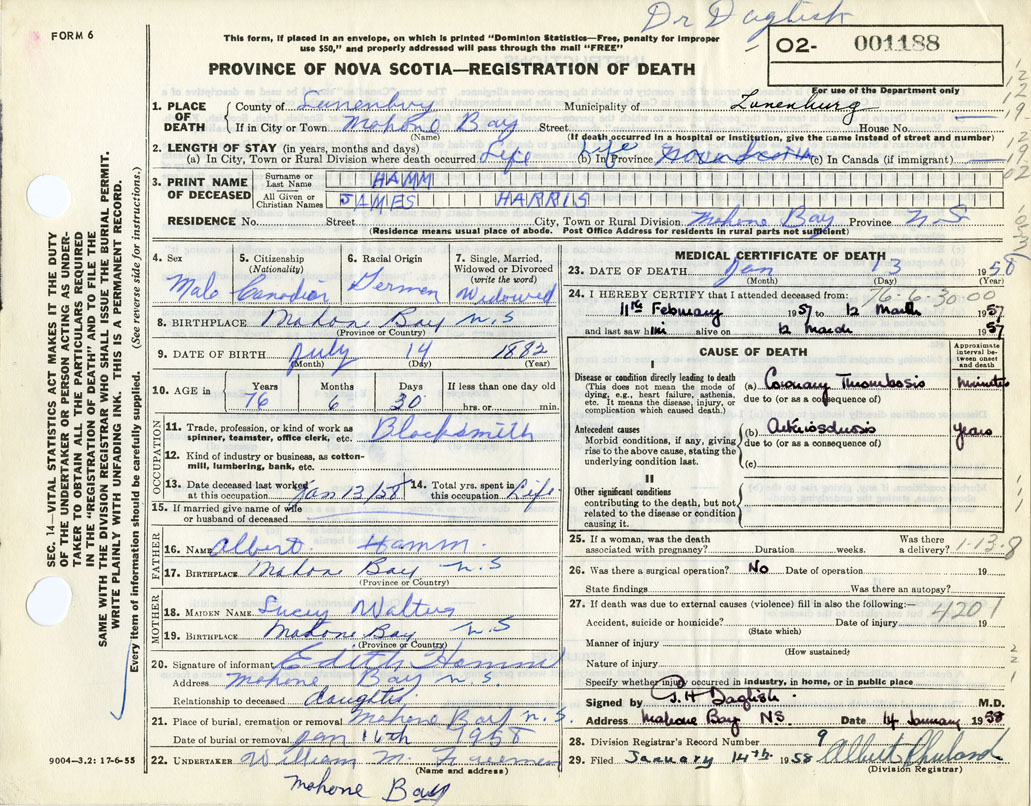 Dr Daglish
FORM 6
This form, if placed in an envelope, on which is printed "Dominion Statistics—Free, penalty for improper
use $50," and properly addressed will pass through the mail "FREE"
02- 001188
For use of the Department only
PROVINCE OF NOVA SCOTIA—REGISTRATION OF DEATH
1. PLACE OF DEATH { County of Lunenburg Municipality of Lunenburg
If in City or Town Mahone Bay Street House No.
(Name) (If death occurred in a hospital or institution, give the name instead of street and number)
2. LENGTH OF STAY (in years, months and days)
(a) In City, Town or Rural Division where death occurred Life (b) In Province Life Nova Scotia (c) In Canada (if immigrant)
3. PRINT NAME OF DECEASED { Surname or Last Name HAMM
All Given or Christian Names JAMES HARRIS
RESIDENCE No. Street City, Town or Rural Division Mahone Bay Province N.S
(Residence means usual place of abode. Post Office Address for residents in rural parts not sufficient)
4. Sex Male
5. Citizenship (Nationality) Canadian
6. Racial Origin German
7. Single, Married, Widowed or Divorced (write the word) Widowed
8. BIRTHPLACE Mahone Bay N.S
(Province or Country)
9. DATE OF BIRTH July 14 1882
(Month) (Day) (Year)
10. AGE in { Years 76 Months 6 Days 30 If less than one day old hrs. or min.
OCCUPATION
11. Trade, profession, or kind of work as spinner, teamster, office clerk, etc. Blacksmith
12. Kind of industry or business, as cotton-mill, lumbering, bank, etc.
13. Date deceased last worked at this occupation Jan 13/58 14. Total yrs. spent in this occupation Life
15. If married give name of wife or husband of deceased
FATHER
16. NAME Albert Hamm
17. BIRTHPLACE Mahone Bay N.S
(Province or Country)
MOTHER
18. MAIDEN NAME Lucey Walters
19. BIRTHPLACE Mahone Bay N.S
(Province or Country)
20. Signature of informant Edith Hamm
Address Mahone Bay N.S.
Relationship to deceased daughter
21. Place of burial, cremation or removal Mahone Bay N.S.
Date of burial or removal Jan 16th 1958
22. UNDERTAKER William M
(Name and address)
Mahone Bay
9004—3.2: 17-6-55
MEDICAL CERTIFICATE OF DEATH
23. DATE OF DEATH Jan 13 1958
(Month) (Day)
76-6-30-00
24. I HEREBY CERTIFY that I attended deceased from:
11th February 1957 to 12 March 1957
and last saw him alive on 12 March 1957
CAUSE OF DEATH
Approximate interval between onset and death
I
Disease or condition directly leading to death
(This does not mean the mode of dying, e.g., heart failure, asthenia, etc. It means the disease, injury, or complication which caused death.)
(a) Coronary Thrombosis minutes
due to (or as a consequence of)
Antecedent causes
Morbid conditions, if any, giving rise to the above cause, stating the underlying condition last.
(b) Arteriosclerosis years
due to (or as a consequence of)
(c)
II
Other significant conditions
contributing to the death, but not related to the disease or condition causing it.
25. If a woman, was the death associated with pregnancy? Duration weeks. Was there a delivery?
1-13-8
26. Was there a surgical operation? No Date of operation 19
State findings Was there an autopsy?
27. If death was due to external causes (violence) fill in also the following:—
4201
Accident, suicide or homicide? Date of injury 19
(State which)
Manner of injury
(How sustained)
Nature of injury
Specify whether injury occurred in industry, in home, or in public place
Signed by J. H Daglish M.D.
Address Mahone Bay NS Date 14 January 1958
28. Division Registrar's Record Number 9
29. Filed January 14th 1958 Albert
(Division Registrar)
SEC. 14—VITAL STATISTICS ACT MAKES IT THE DUTY
OF THE UNDERTAKER OR PERSON ACTING AS UNDER-
TAKER TO OBTAIN ALL THE PARTICULARS REQUIRED
IN THE "REGISTRATION OF DEATH" AND TO FILE THE
SAME WITH THE DIVISION REGISTRAR WHO SHALL ISSUE THE BURIAL PERMIT.
WRITE PLAINLY WITH UNFADING INK. THIS IS A PERMANENT RECORD.
Every item of information should be carefully supplied. (See reverse side for instructions.)